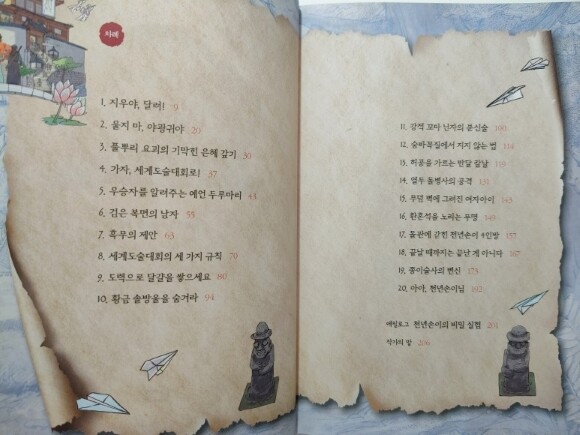 차례
1. 지우야, 달려! 9
2. 울지 마, 야광귀야 20
3. 풀뿌리 요괴의 기막힌 은혜 갚기 30
4. 가자, 세계도술대회로! 37
5. 우승자를 알려주는 예언 두루마리 43
6. 검은 복면의 남자 55
7. 흑무의 제안 63
8. 세계도술대회의 세 가지 규칙 70
9. 도력으로 달걀을 쌓으세요 80
10. 황금 솔방울을 숨겨라 94
11. 강적 꼬마 닌자의 분신술
12. 숨바꼭질에서 지지 않는 법 114
13. 허공을 가르는 반달 칼날
14. 열두 돌병사의 공격 131
15. 무덤 벽에 그려진 여자아이 143
16. 환혼석을 노리는 무명 149
17. 돌판에 갇힌 천년손이 4인방 157
18. 끝날 때까지는 끝난 게 아니다 167
19. 종이술사의 변신 173
20. 아아, 천년손이님 182
에필로그 천년손이의 비밀 실험 201
작가의 말 206